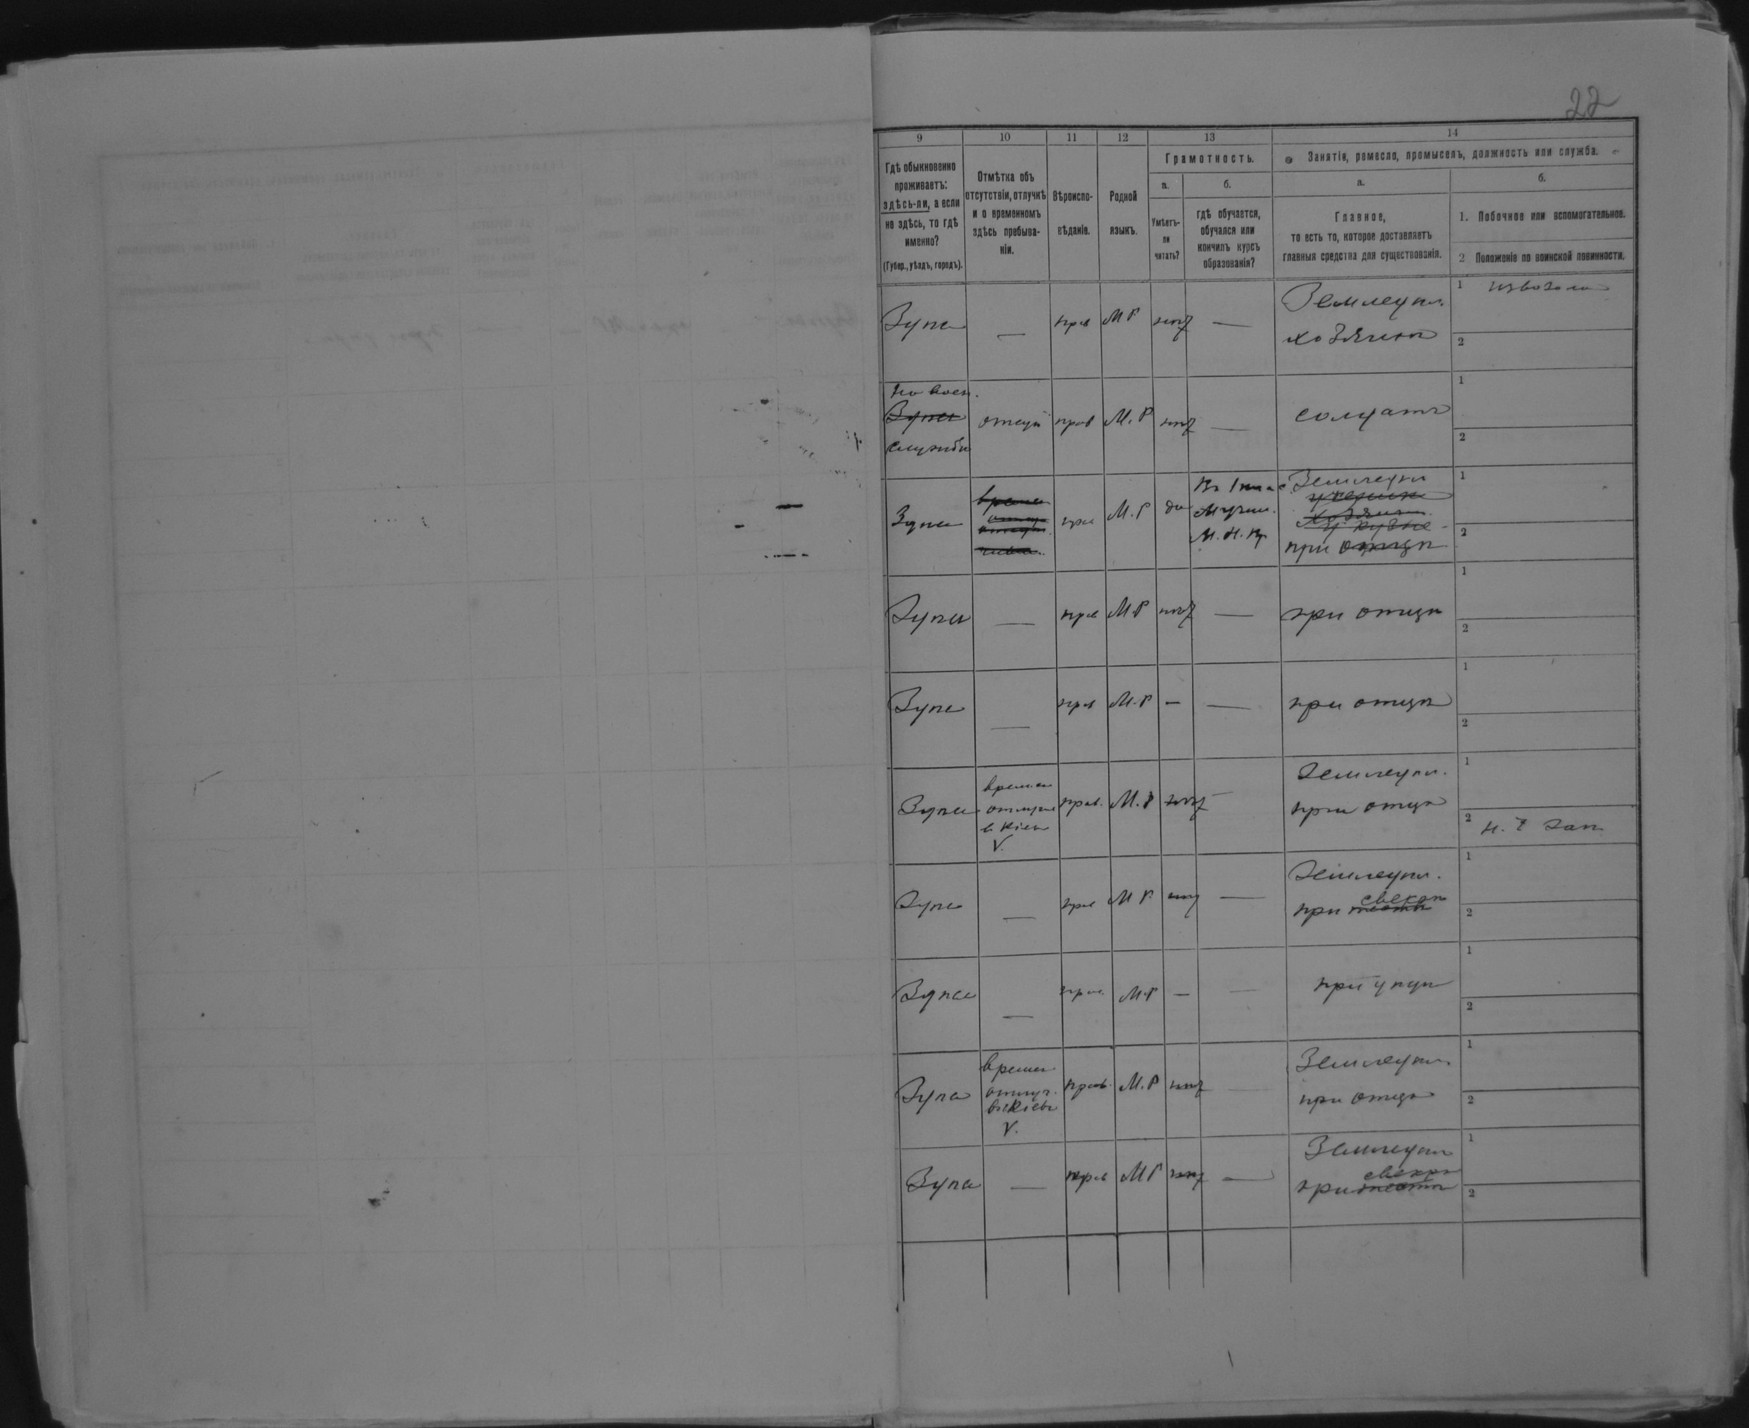 22
9 10 11 12 13 14
Гдѣ обыкновенно
проживаетъ:
здѣсь-ли, а если
не здѣсь, то гдѣ
именно?
(Губер., уѣздъ, городъ).
Отмѣтка объ
отсутствіи, отлучкѣ
и о временномъ
здѣсь пребыва-
ніи.
Вѣроиспо-
вѣданіе.
Родной
языкъ.
Грамотность.
а. б.
Умѣетъ-
ли
читать?
гдѣ обучается,
обучался или
кончилъ курсъ
образованія?
Занятія, ремесло, промыселъ, должность или служба.
а. б.
Главное,
то есть то, которое доставляетъ
главныя средства для существованія.
1. Побочное или вспомогательное.
2 Положеніе по воинской повинности.
Здѣсь — прав М Р нѣтъ —
Земледѣл.
хозяинъ
1
2
На воен.
Здѣсь
службѣ
отсут прав М. Р нѣтъ —
солдатъ
1
2
Здѣсь
пра М. Р да
М. Н. Пр
Земледѣл
при отцѣ
1
2
Здѣсь — прав М Р нѣтъ — при отцѣ
1
2
Здѣсь — прав М. Р — — при отцѣ
1
2
Здѣсь
времен
отлуч
в Кіевъ
V
прав. М. Р нѣтъ —
Земледѣл.
при отцѣ
1
2
Здѣсь — прав М Р нѣтъ —
Земледѣл.
свекрѣ
при
1
2
Здѣсь — прав. М Р — —
при
1
2
Здѣсь
времен
отлуч.
въ Кіевъ
V.
прав. М. Р нѣтъ —
Земледѣл
при отцѣ
1
2
Здѣсь — прав М Р нѣтъ —
Земледѣл
свекрѣ
при
1
2